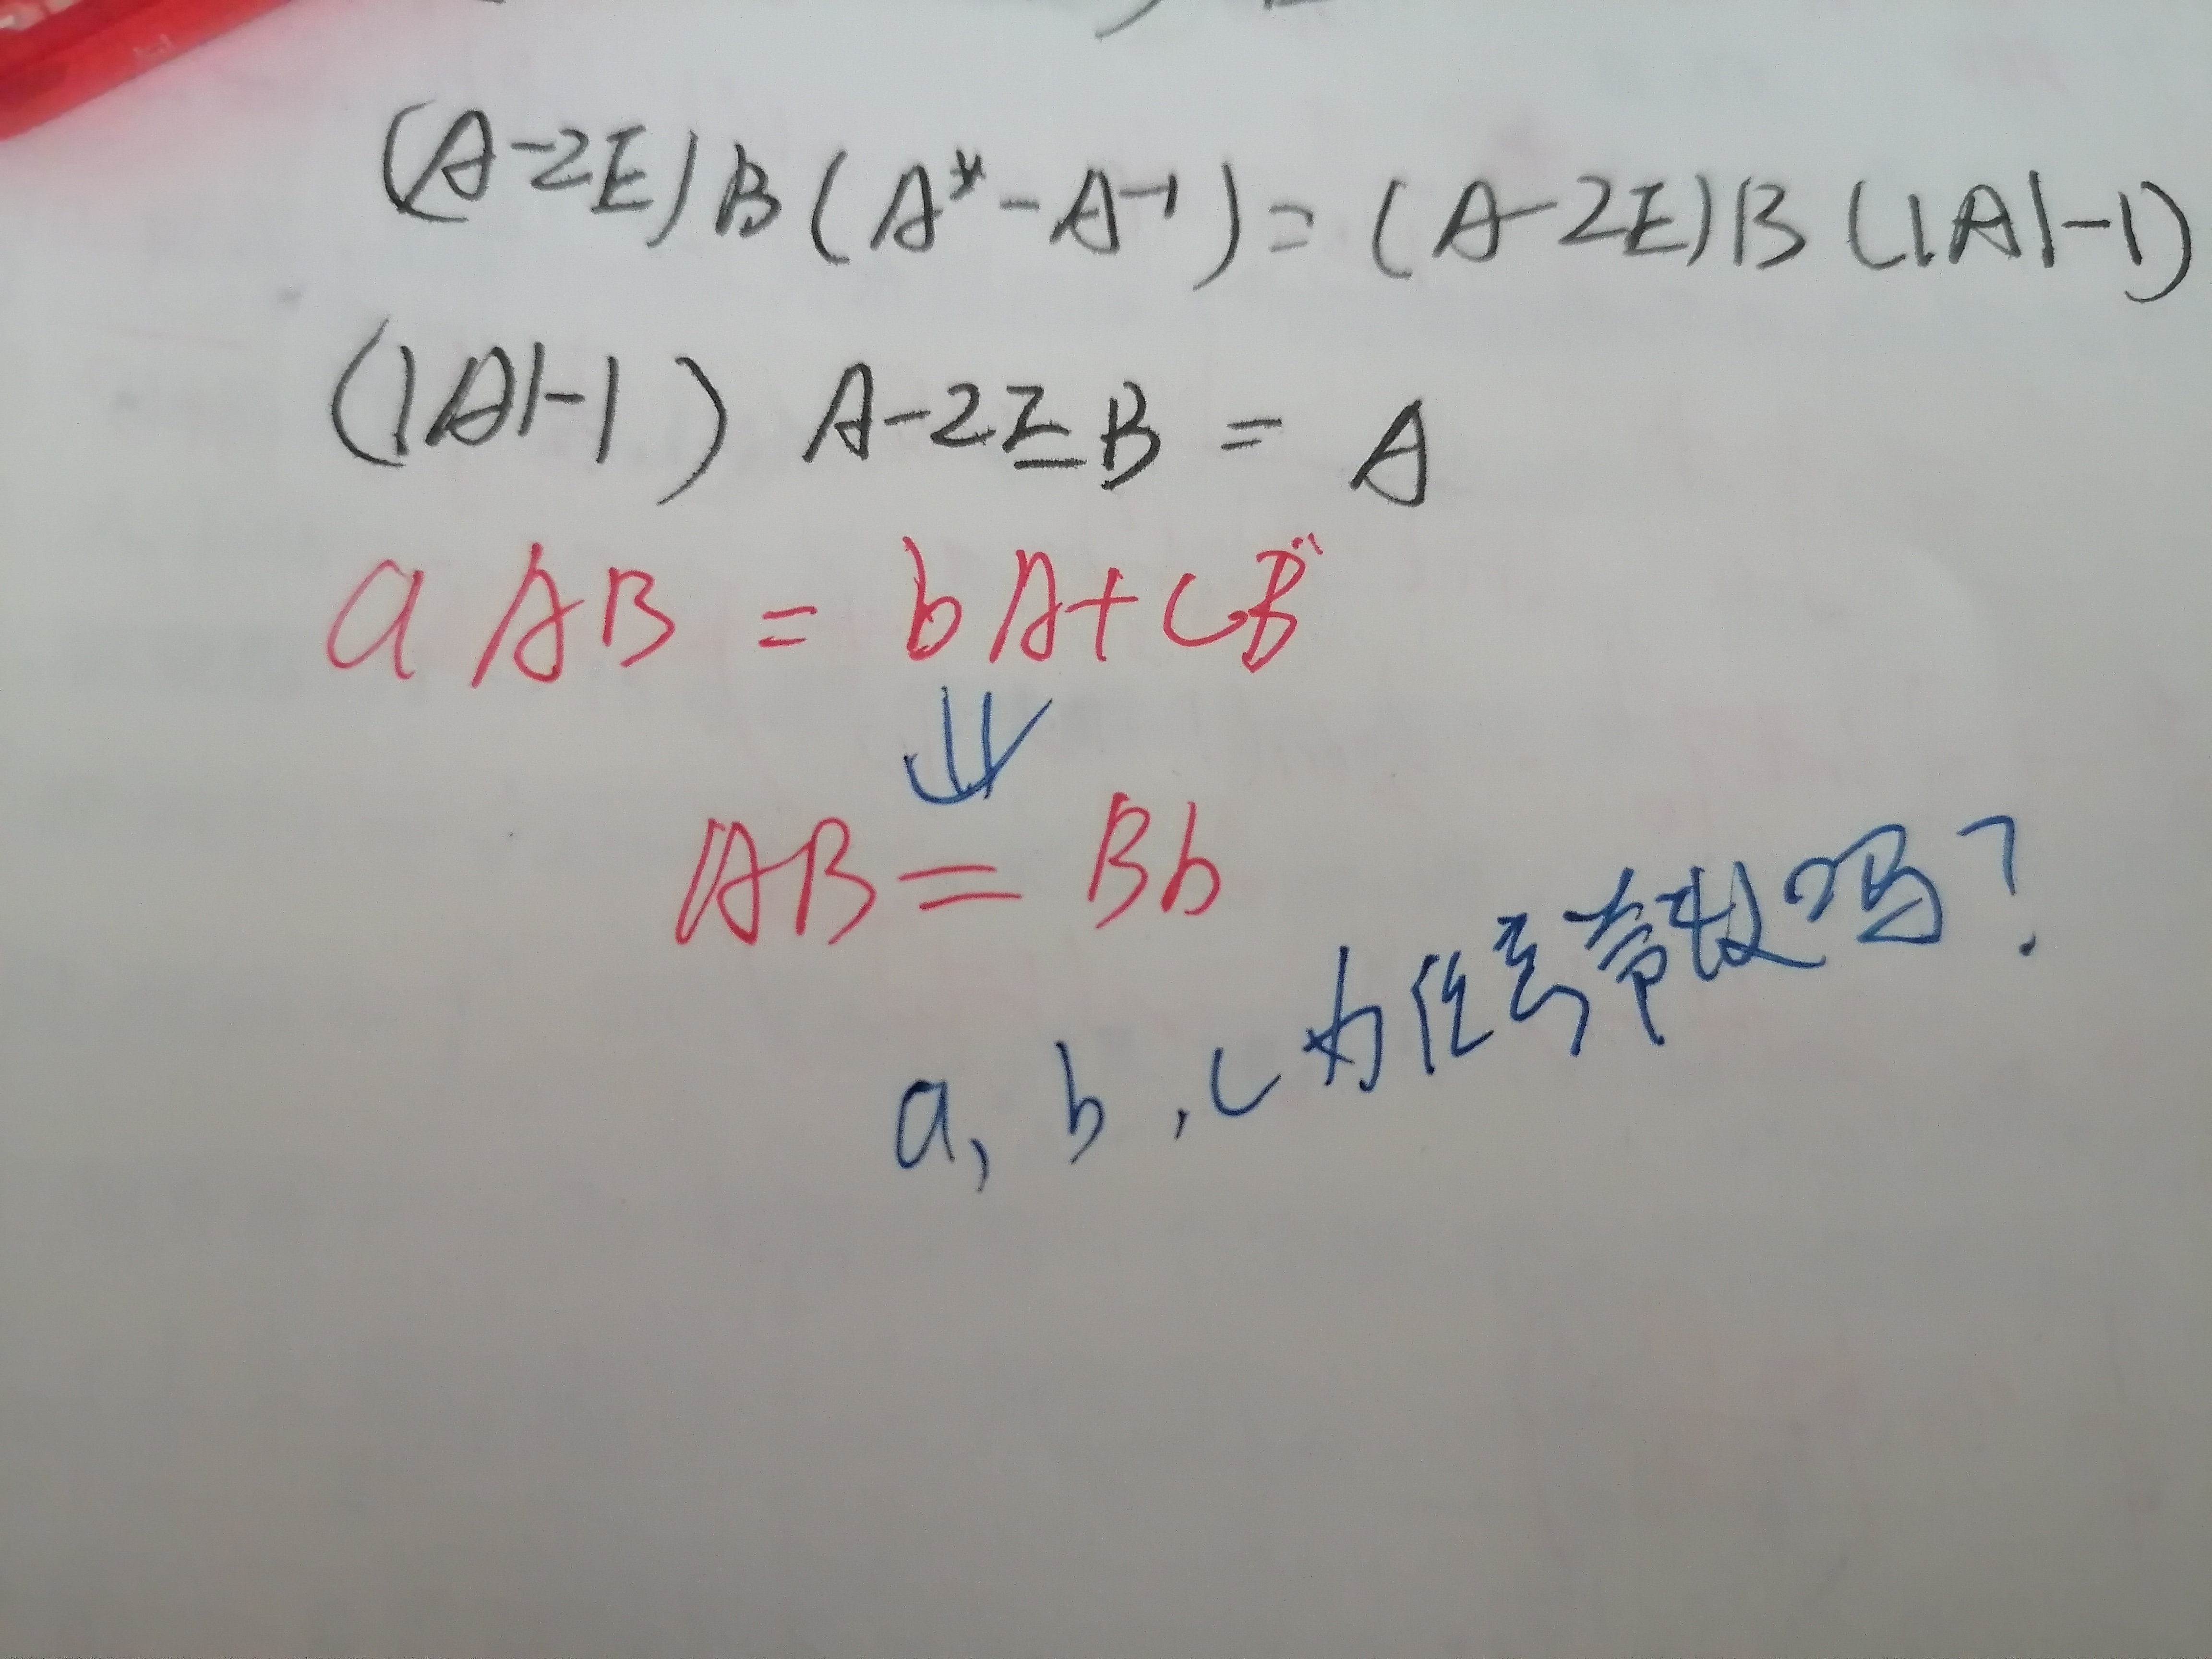 (A-2E)B(A*-A⁻¹)=(A-2E)B(|A|-1)
(|A|-1) A-2EB = A
a AB = bA+CB
⇓
AB = Bb
a, b, c为任意常数吗?